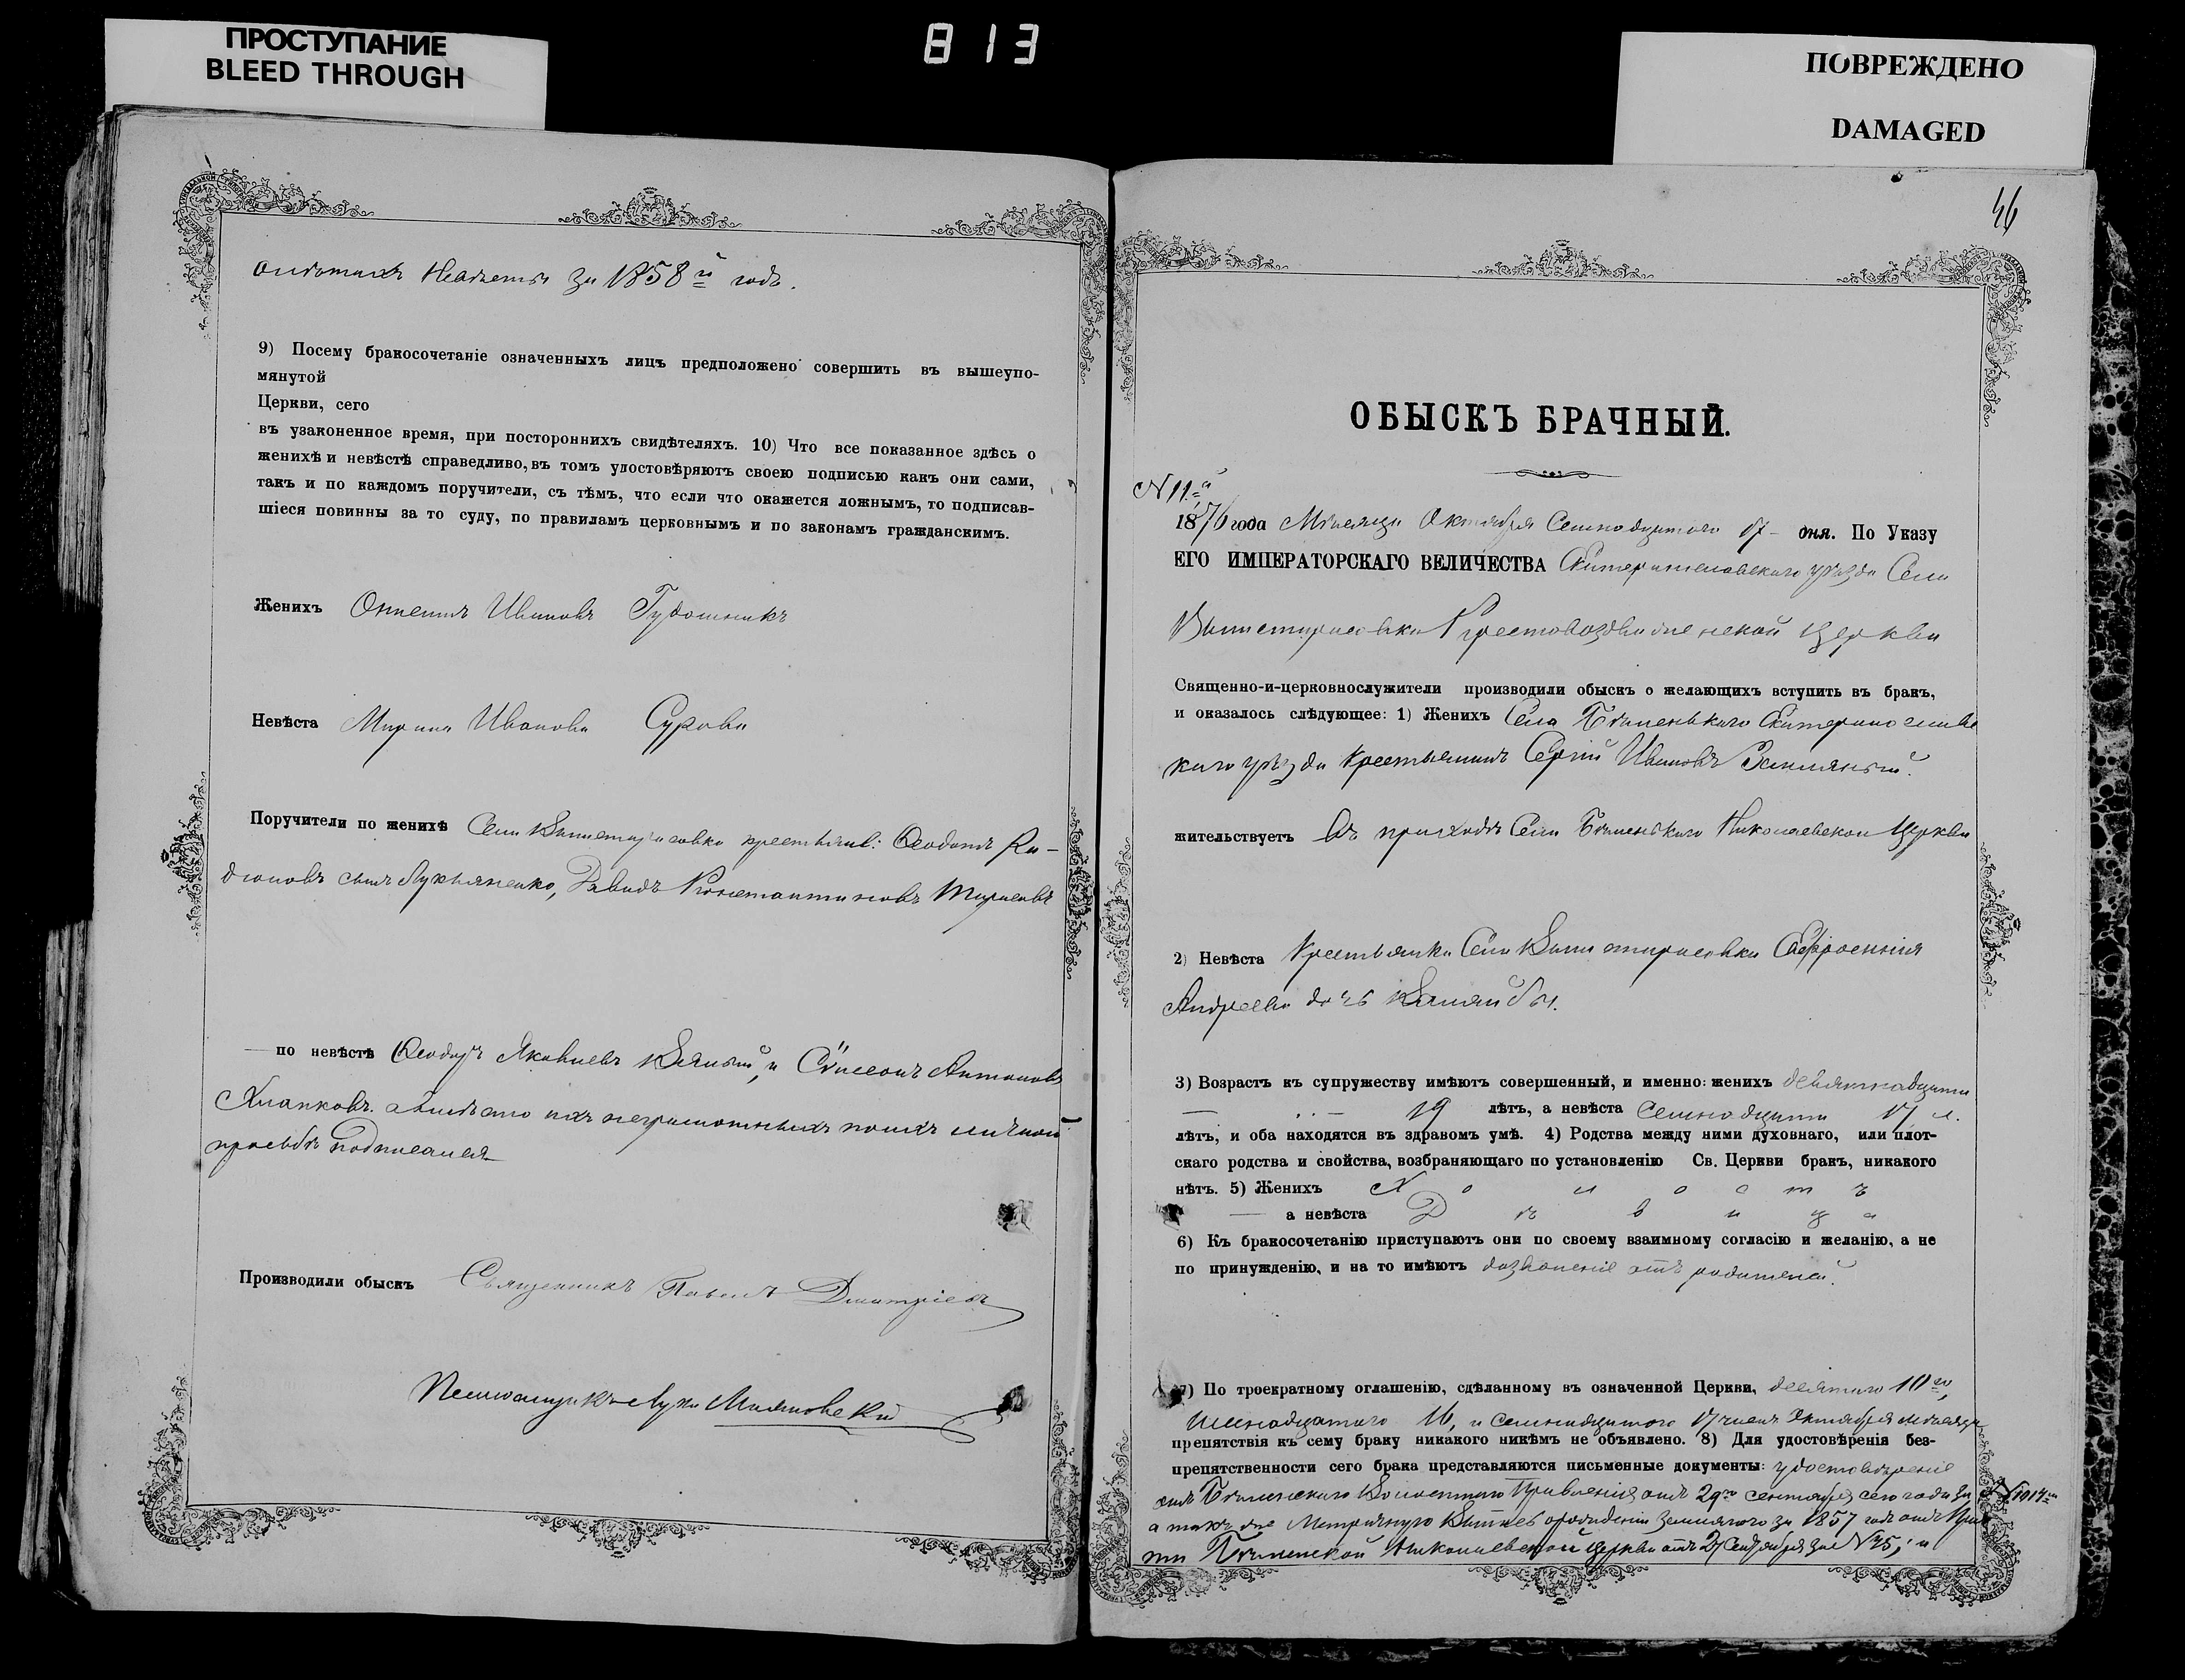 ПРОСТУПАНИЕ
BLEED THROUGH
813
ПОВРЕЖДЕНО
DAMAGED
за 1858й годъ.
9) Посему бракосочетаніе означенныхъ лицъ предположено совершить въ вышеупо-
мянутой
Церкви, сего
въ узаконенное время, при постороннихъ свидѣтеляхъ. 10) Что все показанное здѣсь о
женихѣ и невѣстѣ справедливо, въ томъ удостовѣряютъ своею подписью какъ они сами,
такъ и по каждомъ поручители, съ тѣмъ, что если что окажется ложнымъ, то подписав-
шіеся повинны за то суду, по правиламъ церковнымъ и по законамъ гражданскимъ.
Женихъ Ивановъ Гудошникъ
Невѣста Марина Иванова Сурова
Поручители по женихѣ Села Вышетарасовки крестьян: Ѳеодотъ Ра-
діоновъ сынъ Лукьяненко, Давидъ Константиновъ Тарасовъ
по невѣстѣ Ѳеодоръ Яковлевъ и Антоновъ
Хлапковъ. а вмѣсто ихъ неграмотныхъ по ихъ личной
просьбѣ подписался
Производили обыскъ Священникъ Павелъ Дмитріевъ
Псаломщикъ Лука
46
ОБЫСКЪ БРАЧНЫЙ.
N 11.й
1876 года Мѣсяца Октября Семнадцатого 17 - дня. По Указу
ЕГО ИМПЕРАТОРСКАГО ВЕЛИЧЕСТВА Екатеринославскаго уѣзда Села
Вышетарасовки Крестовоздвиженской Церкви
Священно-и-церковнослужители производили обыскъ о желающихъ вступить въ бракъ,
и оказалось слѣдующее: 1) Женихъ Села Бѣленькаго Екатеринославс
каго уѣзда крестьянинъ Сергій Ивановъ Земляный.
жительствуетъ въ приходѣ Села Бѣленькаго Николаевской Церкви
2) Невѣста Крестьянка Села Вышетарасовки Евфросинія
Андреева дочь
3) Возрастъ къ супружеству имѣютъ совершенный, и именно: женихъ девятнадцати
19 лѣтъ, а невѣста семнадцати 17 л.
лѣтъ, и оба находятся въ здравомъ умѣ. 4) Родства между ними духовнаго, или плот-
скаго родства и свойства, возбраняющаго по установленію Св. Церкви бракъ, никакого
нѣтъ. 5) Женихъ Холостъ
а невѣста Дѣвица
6) Къ бракосочетанію приступаютъ они по своему взаимному согласію и желанію, а не
по принужденію, и на то имѣютъ дозволеніе отъ родителей.
7) По троекратному оглашенію, сдѣланному въ означенной Церкви, десятаго 10го,
шеснадцатого 16, и семнадцатого 17 чиселъ Октября мѣсяца
препятствія къ сему браку никакого никѣмъ не объявлено. 8) Для удостовѣренія без-
препятственности сего брака представляются письменные документы: удостовѣреніе
отъ Бѣленскаго Волостного Правленія отъ 29го сентября сего года за N 1914м
а такъ же Метричную Выпись о рожденіи Земляного за 1857 годъ отъ
Бѣленской Николаевской церкви отъ 27 Сентября за N 35; и